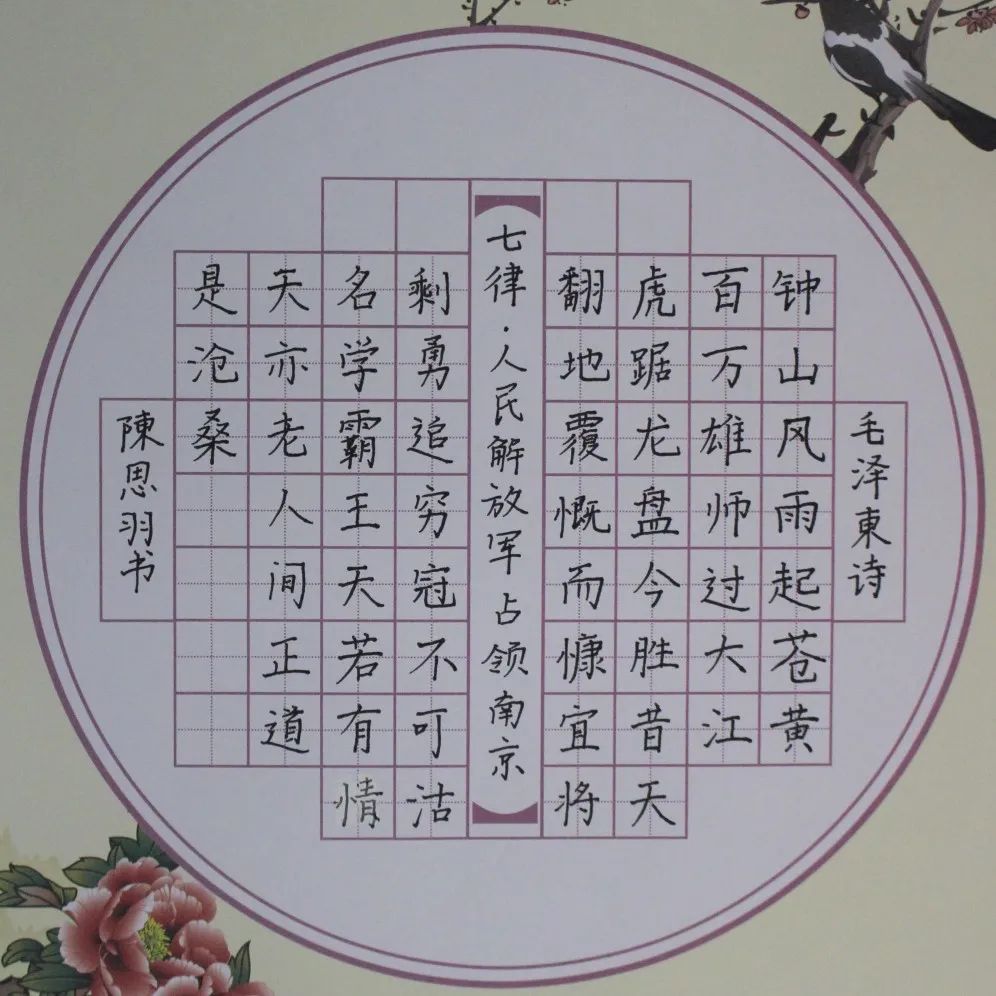 毛泽東诗
钟山风雨起苍黄
百万雄师过大江
虎踞龙盘今胜昔天
翻地覆慨而慷宜将
七律·人民解放军占领南京
剩勇追穷冠不可沽
名学霸王天若有情
天亦老人间正道
是沧桑
陳思羽书